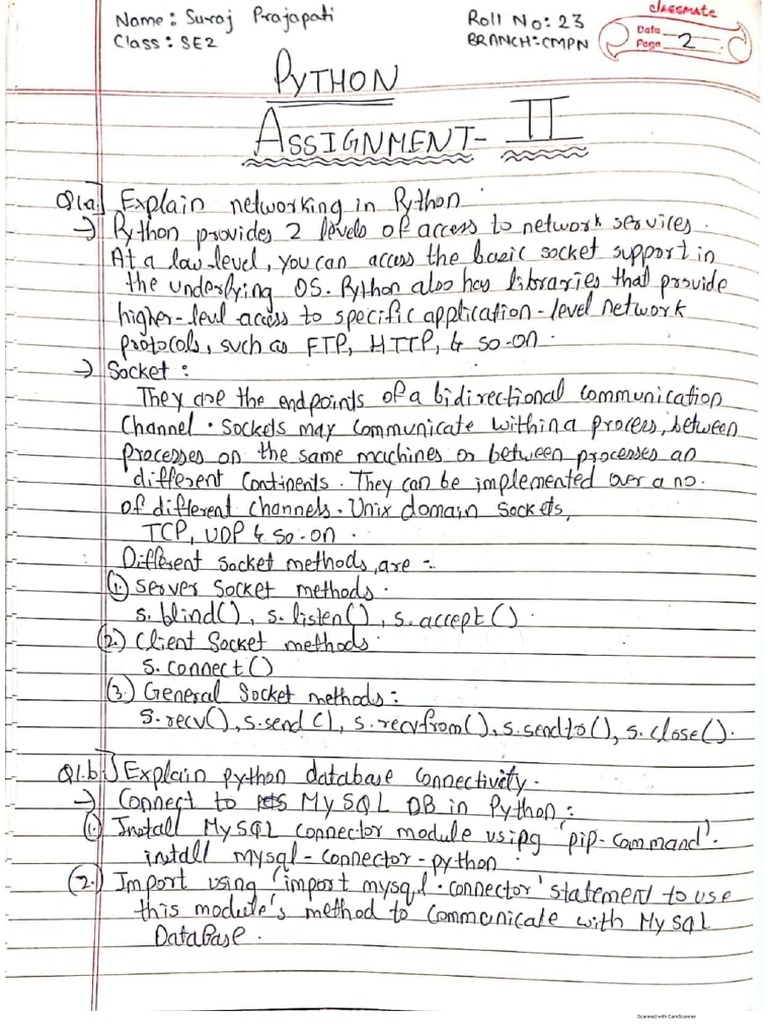 Name: Suraj Prajapati
Roll No: 23
classmate
Class: SE2
BRANCH: CMPN
Date
Page 2
PYTHON
ASSIGNMENT- II
Q1.a.] Explain networking in Python.
→ Python provides 2 levels of access to network services.
At a low-level, you can access the basic socket support in
the underlying OS. Python also has libraries that provide
higher-levl access to specific application-level network
protocols, such as FTP, HTTP, & so-on.
→ Socket:
They are the endpoints of a bidirectional communication
Channel. Sockets may communicate within a process, between
processes on the same machines or between processes on
different Continents. They can be implemented over a no.
of different channels. Unix domain Sockets,
TCP, UDP & so-on.
Different socket methods, are :-
(1.) Server Socket methods.
s.blind(), s.listen(), s.accept().
(2.) Client Socket methods.
s.connect()
(3.) General Socket methods:
s.recv(), s.send(), s.recvfrom(), s.sendto(), s.close().
Q1.b.] Explain python database connectivity.
→ Connect to MySQL DB in Python:
(1.) Install MySQL connector module using 'pip-command'.
install mysql-connector-python.
(2.) Import using 'import mysql.connector' statement to use
this module's method to communicate with MySQL
DataBase.
Scanned with CamScanner